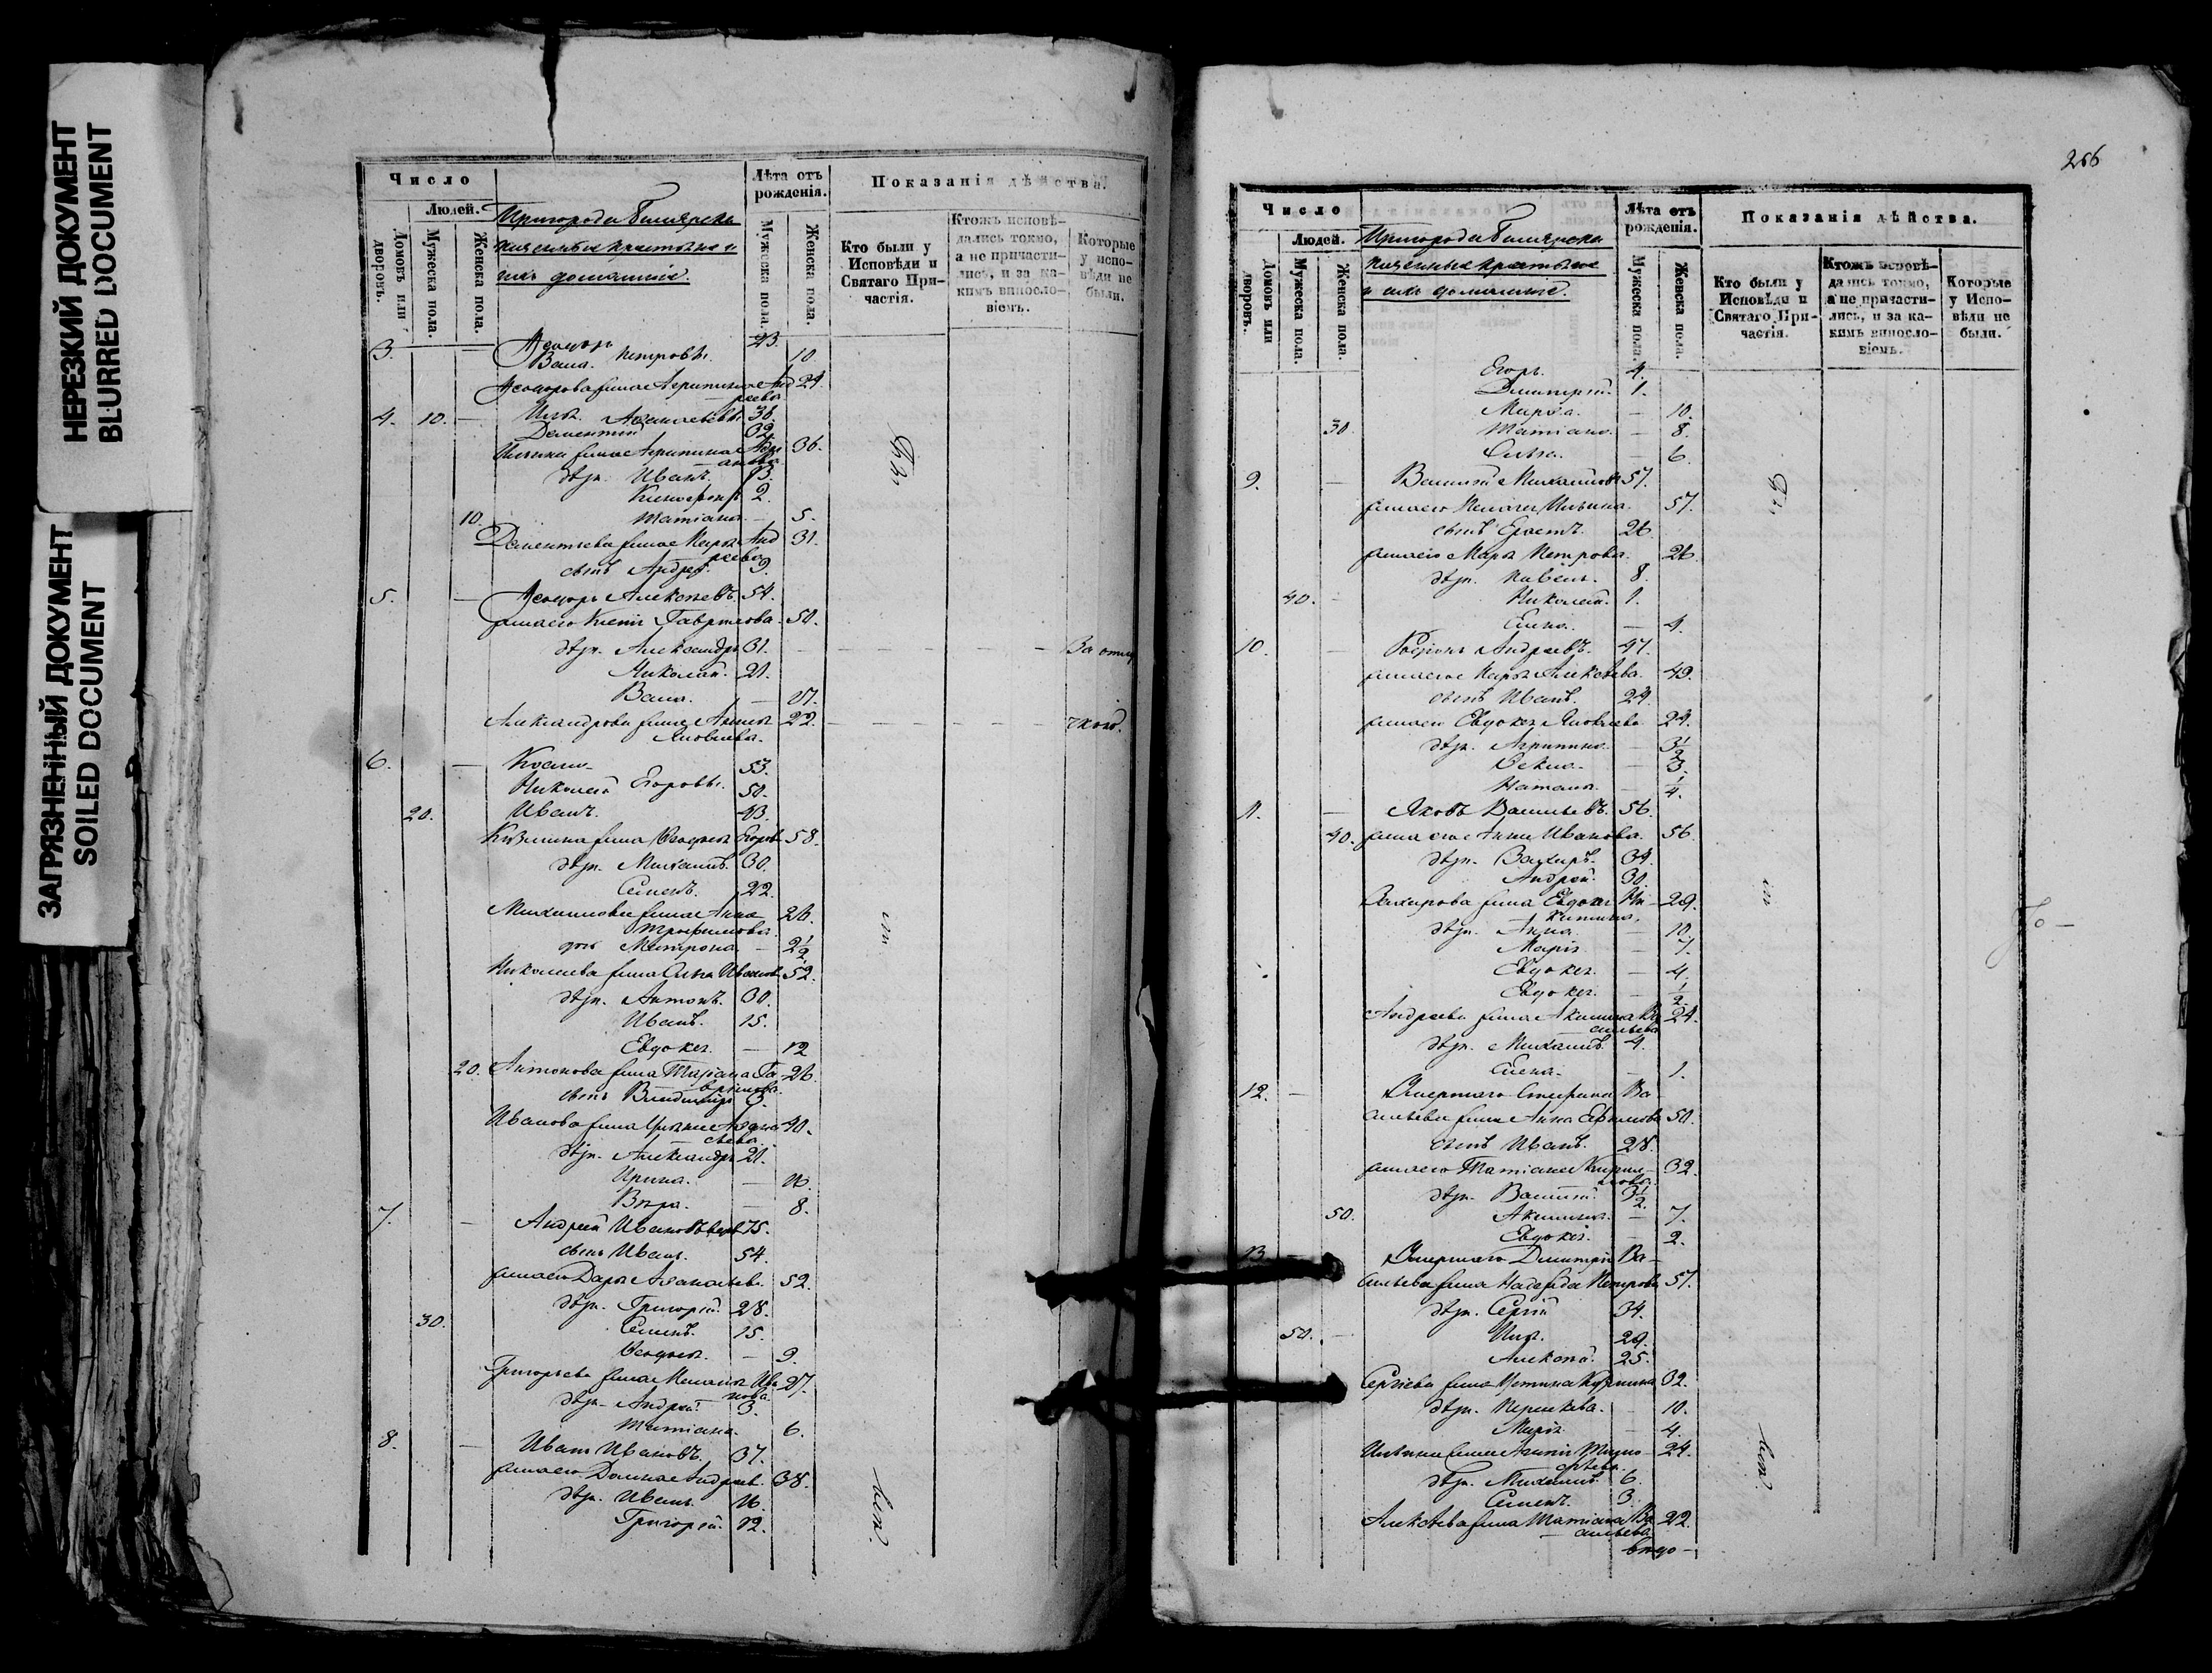 НЕРЕЗКИЙ ДОКУМЕНТ
BLURRED DOCUMENT
ЗАГРЯЗНЕННЫЙ ДОКУМЕНТ
SOILED DOCUMENT
Число
Людей.
Домовъ или дворовъ.
Мужеска пола.
Женска пола.
Пригорода Билярска
казенные крестьяне и
ихъ домашніе.
Лѣта отъ рожденія.
Мужеска пола.
Женска пола.
Показанія дѣйства.
Кто были у Исповѣди и Святаго Причастія.
Ктожъ исповѣдались токмо, а не причастились, и за какимъ винословіемъ.
Которые у исповѣди не были.
3. — — Ѳеодоръ 23.
Васса. Петровы. 10
Ѳеодорова жена Агрипина Анд 24
реева
4. 10. — Илья Алексѣевы 38.
Дементій 32
Ильина жена Агрипина 36.
дѣти. Иванъ. 13.
Никифоръ 2.
10. Татіана — 5.
Дементьева жена Марья Анд 31.
реева
сынъ Андрей. 9.
5. — Ѳеодоръ Алексѣевъ. 54.
жена его Гаврилова. 50.
дѣти. Александръ 31. За отлу
Николай. 21.
— 17.
Александрова жена Анна 22. чкой.
Яковлева.
6. — Косма 53.
Николай Егоровы. 50.
20. Иванъ. 43.
Кузмина жена Ѳеодосья Егоров 58.
дѣти. Михаилъ. 30.
Семенъ. 22.
Михаилова жена Анна 26.
Трофимова.
дочь Матрона. — 2½
Николаева жена Анна Иванов. 52.
дѣти. Антонъ. 30.
Иванъ. 15.
Евдокія. — 12
20. Антонова жена Татіана Га 26.
врилова.
сынъ Владимиръ 3.
Иванова жена Ирина Аѳана 40.
сьева
дѣти. Александръ 21.
Ирина. — 16.
Вѣра. — 8.
7. — Андрей Ивановъ 75.
сынъ Иванъ. 54.
жена его Дарья Аѳанасьева. 52.
дѣти. Григорій. 28.
30. Семенъ. 15.
Ѳеодосья. — 9.
Григорьева жена Меланья Ива 27.
нова
дѣти. Андрей. 3.
Татіана. 6.
8. — Иванъ Ивановъ. 37.
жена его Домна Андреев. 38.
дѣти. Иванъ. 16.
Григорій. 12.
Бы
ли
всѣ.
266
Число
Людей.
Домовъ или дворовъ.
Мужеска пола.
Женска пола.
Пригорода Билярска
казенные крестьяне
и ихъ домашніе.
Лѣта отъ рожденія.
Мужеска пола.
Женска пола.
Показанія дѣйства.
Кто были у Исповѣди и Святаго Причастія.
Ктожъ исповѣдались токмо, а не причастились, и за какимъ винословіемъ.
Которые у Исповѣди не были.
Егоръ. 4.
Димитрій. 1.
Марѳа. — 10.
30. Татіана. — 8.
— 6.
9. — Василій Михайловъ 57.
жена его Пелагія Ильина. 57.
сынъ Ерастъ. 26.
жена его Марья Петрова. 26.
дѣти. Павелъ. 8.
40. — Николай. 1.
Елена. — 4.
10. — Родіонъ Андреевъ. 47.
жена его Марья Алексѣева. 49.
сынъ Иванъ. 24.
жена его Евдокія Яковлева 24.
дѣти. Агрипина. — 3½
Ѳекла. — 3.
Наталья. — ¼.
11. — Яковъ Васильевъ. 56.
40. жена его Анна Иванова. 56.
дѣти. Захаръ. 34.
Андрей. 30.
Захарова жена Евдокія Ни 29.
китина.
дѣти. Анна. — 10.
Марія. — 7.
Евдокія. — 4.
Евдокія. — ½.
Андреева жена Акилина Ва 24.
сильева
дѣти. Михаилъ. 4.
Елена. — 1.
12. — Умершаго Стефана Ва
сильева жена Анна Ефимова 50.
сынъ Иванъ. 28.
жена его Татіана Кирил 32.
лова.
дѣти. Василій. 3½.
50. Акилина. — 7.
Евдокія. — 2.
13 — Умершаго Дмитрія Ва
сильева жена Надежда Петрова 57.
дѣти. Сергій 34.
50. — Илья. 29.
Алексѣй. 25.
Сергіева жена Устинья Кузмина 32.
дѣти. Параскева. — 10.
Марія. — 4.
Ильина жена 24.
дѣти. Михаилъ. 6.
Семенъ. 3.
Алексѣева жена Татіана Ва 22.
сильева
вдо-
Бы
ли
всѣ.